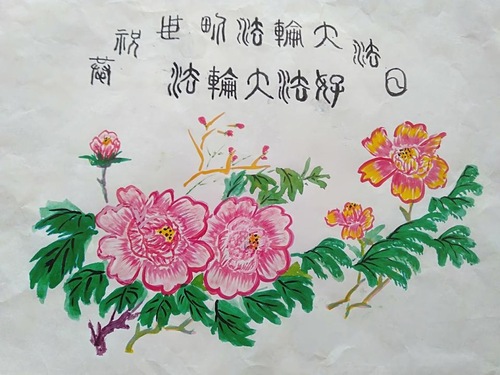 慶祝世界法輪大法日
法輪大法好